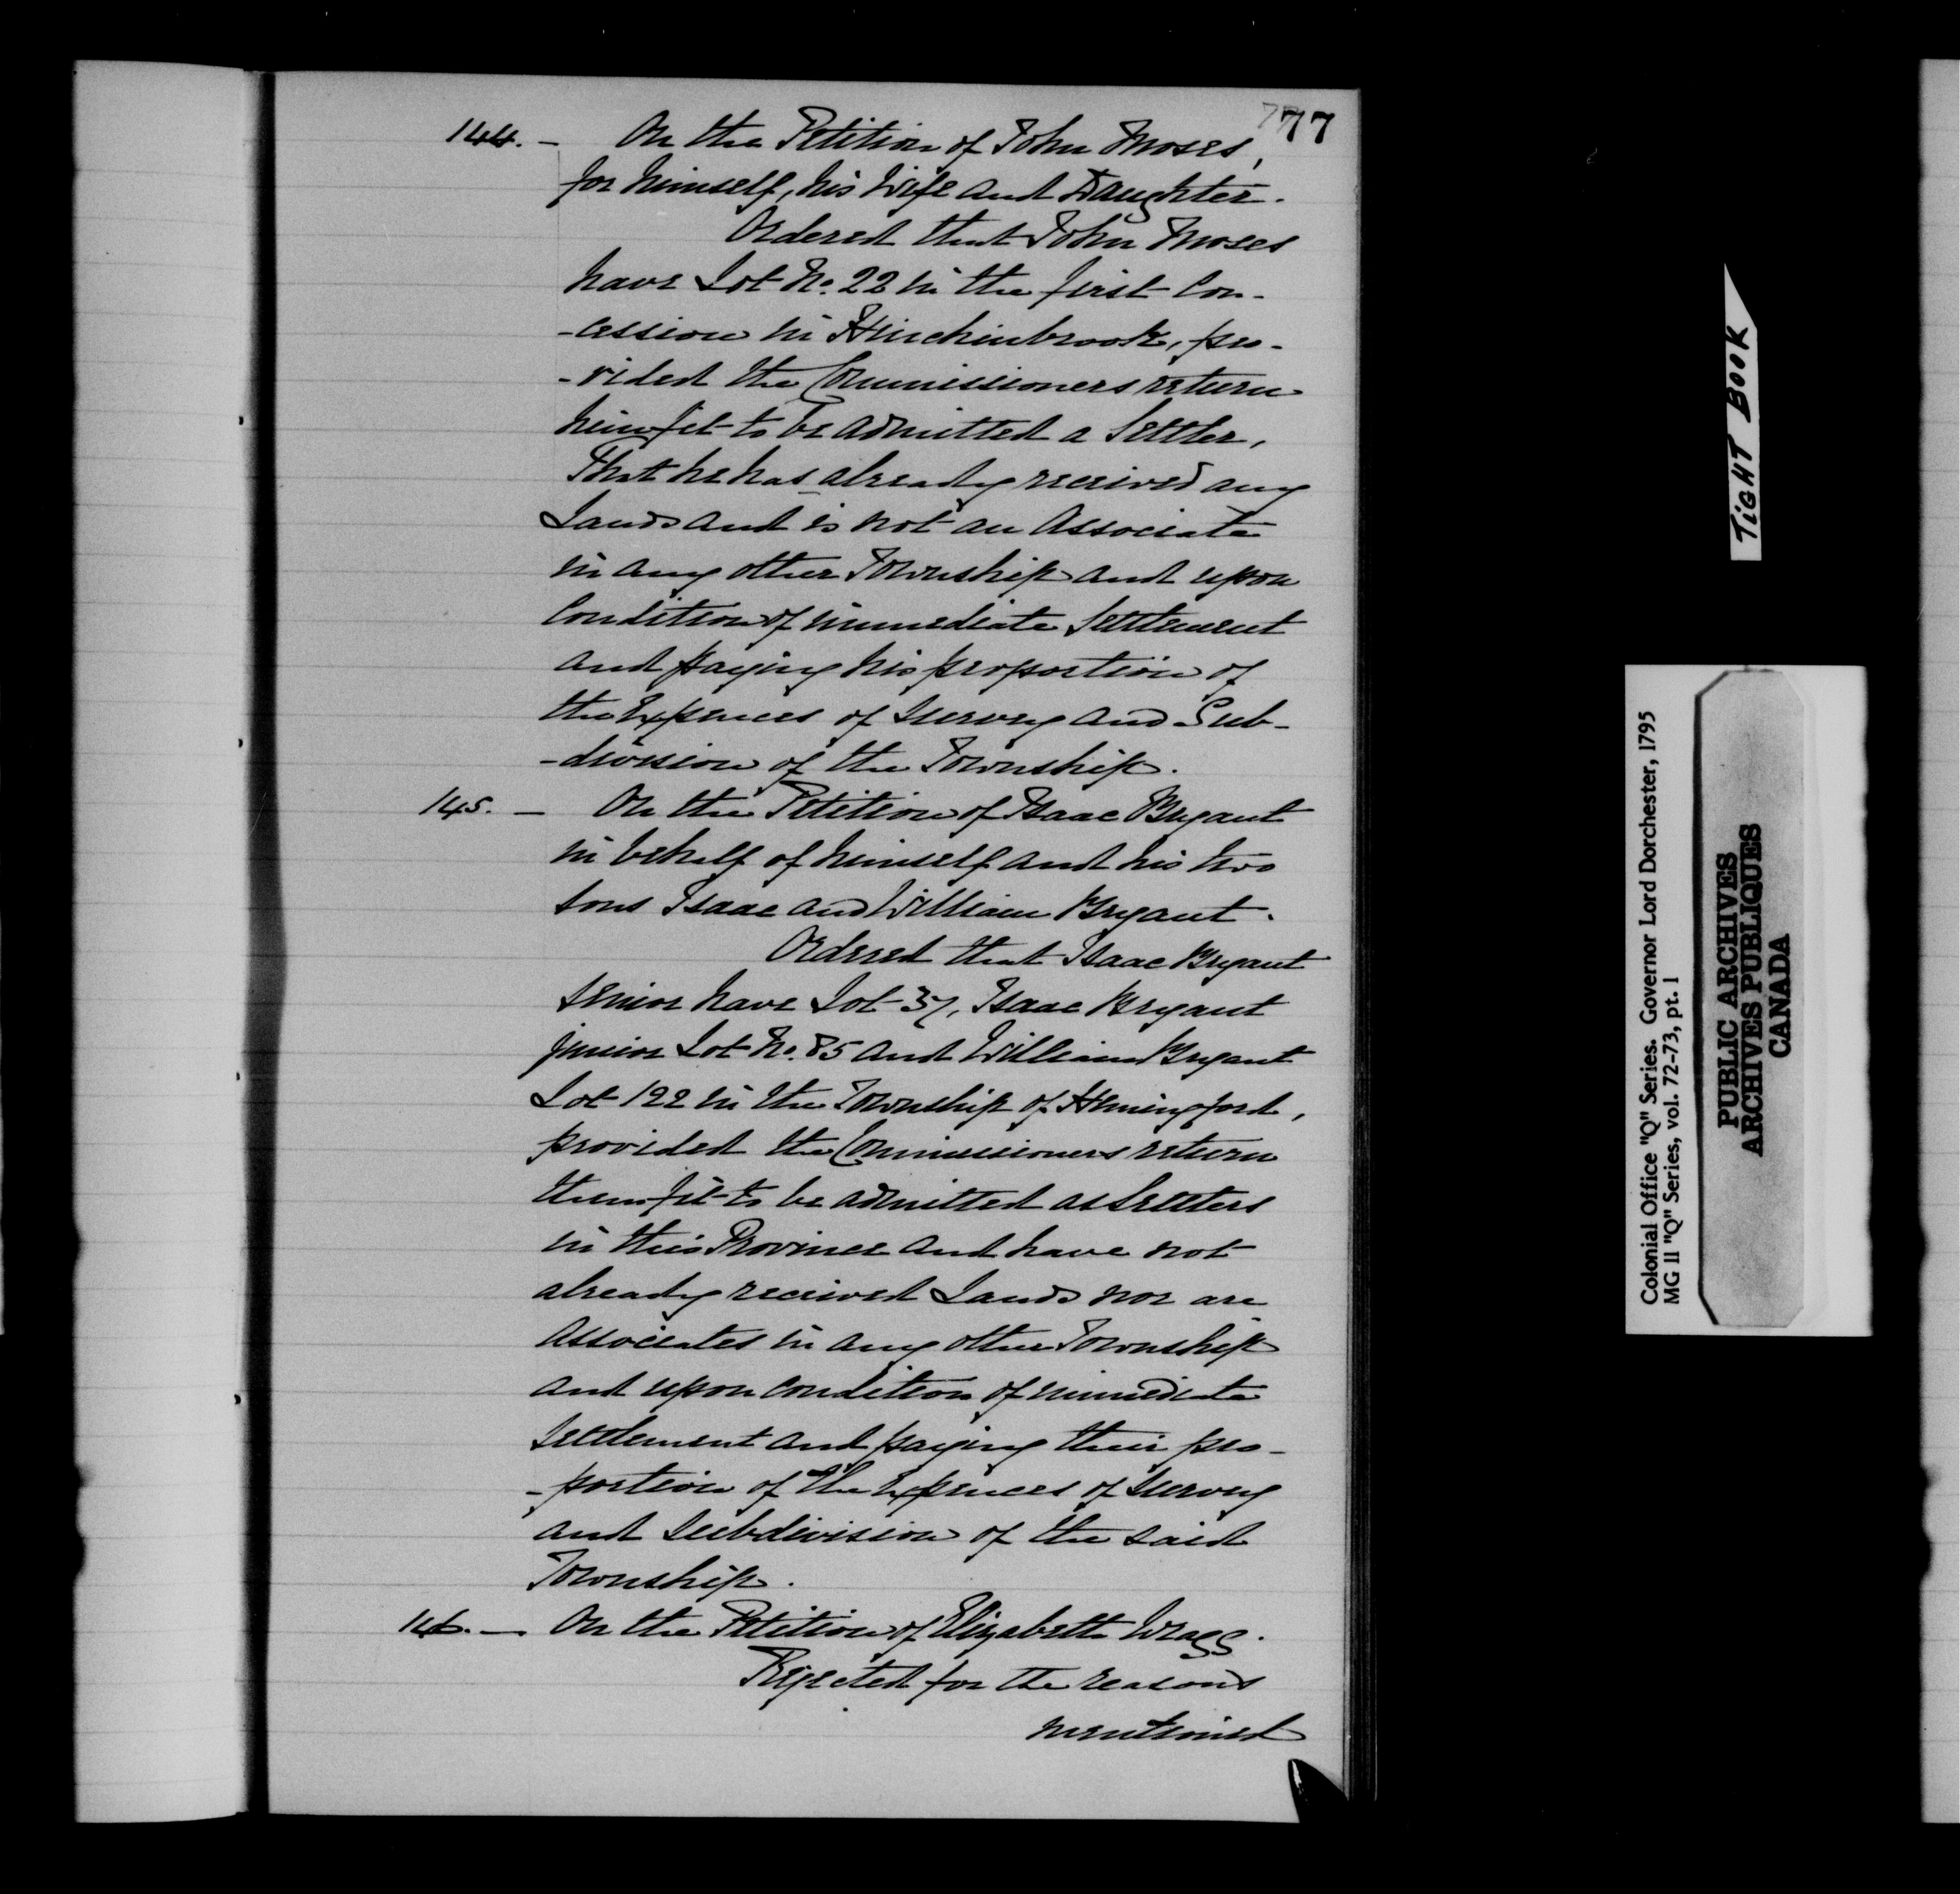 77
144. — On the Petition of John Moses,
for himself, his Wife and Daughter.
Ordered that John Moses
have Lot No. 22 in the first Con-
-cession in Hinchinbrook, pro-
-vided the Commissioners return
him fit to be admitted a Settler,
That he has already received any
Lands and is not an Associate
in any other Township and upon
Condition of immediate Settlement
and paying his proportion of
the Expences of Survey and Sub-
-division of the Township.
145. — On the Petition of Isaac Bryant
in behalf of himself and his two
sons Isaac and William Bryant.
Ordered that Isaac Bryant
senior have Lot 37, Isaac Bryant
junior Lot No. 85 and William Bryant
Lot 122 in the Township of Hemingford,
provided the Commissioners return
them fit to be admitted as Settlers
in this Province and have not
already received Lands nor are
Associates in any other Township
and upon condition of immediate
Settlement and paying their pro-
-portion of the Expences of Survey
and Subdivision of the said
Township.
146. — On the Petition of Elizabeth Wragg.
Rejected for the reasons
mentioned
TIGHT BOOK
Colonial Office "Q" Series. Governor Lord Dorchester, 1795
MG 11 "Q" Series, vol. 72-73, pt. 1
PUBLIC ARCHIVES
ARCHIVES PUBLIQUES
CANADA